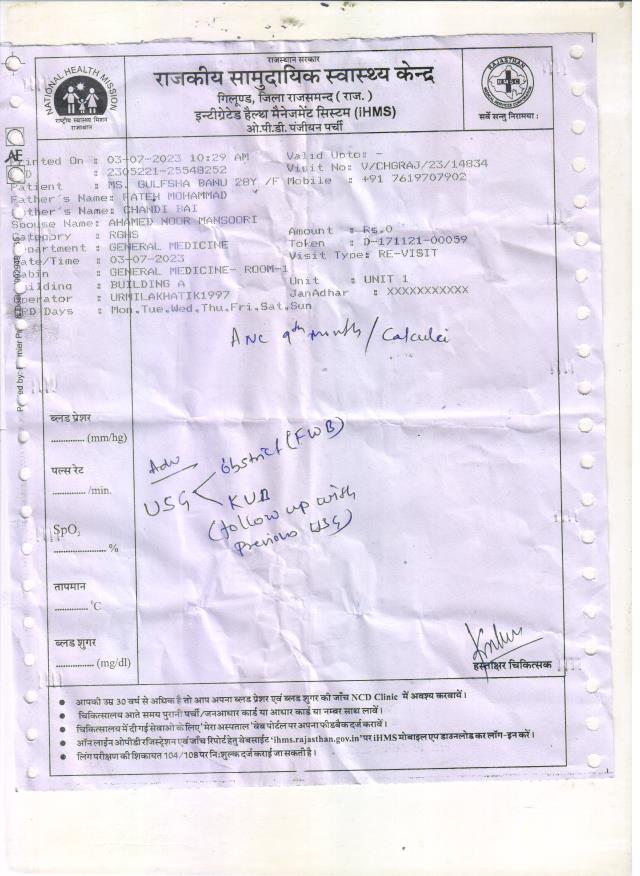 राजस्थान सरकार
राजकीय सामुदायिक स्वास्थ्य केन्द्र
गिलूण्ड, जिला राजसमन्द ( राज. )
इन्टीग्रेटेड हैल्थ मैनेजमेंट सिस्टम (iHMS)
ओ.पी.डी. पंजीयन पर्ची
NATIONAL HEALTH MISSION
राष्ट्रीय स्वास्थ्य मिशन
राजस्थान
RAJASTHAN
MEDICAL SERVICES CORPORATION
सर्वे सन्तु निरामयाः
Printed On : 03-07-2023 10:29 AM Valid Upto: -
: 2305221-25548252 Visit No: V/CHGRAJ/23/14834
Patient : MS. GULFSHA BANU 28Y /F Mobile : +91 7619707902
Father's Name: FATEH MOHAMMAD
Mother's Name: CHANDI BAI
Spouse Name: AHAMED NOOR MANSOORI
Category : RGHS Amount : Rs.0
Department : GENERAL MEDICINE Token : D-171121-00059
Date/Time : 03-07-2023 Visit Type: RE-VISIT
Cabin : GENERAL MEDICINE- ROOM-1
Building : BUILDING A Unit : UNIT 1
Operator : URMILAKHATIK1997 JanAdhar : XXXXXXXXXXX
OPD Days : Mon,Tue,Wed,Thu,Fri,Sat,Sun
ANC 9th month / Calculei
ब्लड प्रेशर
.............. (mm/hg)
पल्स रेट
.............. /min.
SpO2
...................... %
तापमान
.............. °C
ब्लड शुगर
.............. (mg/dl)
Adv
USG
Obstrict (FWB)
KUB
(follow up with
previous USG)
हस्ताक्षर चिकित्सक
● आपकी उम्र 30 वर्ष से अधिक है तो आप अपना ब्लड प्रेशर एवं ब्लड शुगर की जाँच NCD Clinic में अवश्य करवावें।
● चिकित्सालय आते समय पुरानी पर्ची/जनआधार कार्ड या आधार कार्ड या नम्बर साथ लावें।
● चिकित्सालय में दी गई सेवाओं के लिए 'मेरा अस्पताल' वेब पोर्टल पर अपना फीडबैक दर्ज करावें।
● ऑनलाईन ओपीडी रजिस्ट्रेशन एवं जाँच रिपोर्ट हेतु वेबसाईट 'ihms.rajasthan.gov.in' पर iHMS मोबाइल एप डाउनलोड कर लॉग-इन करें।
● लिंग परीक्षण की शिकायत 104/108 पर निःशुल्क दर्ज कराई जा सकती है।